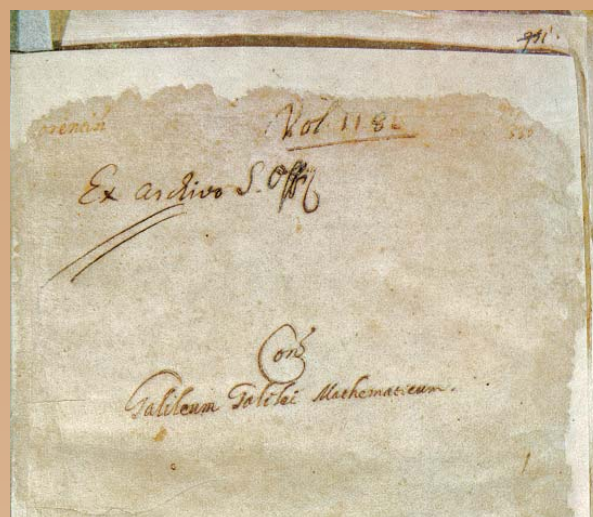 Vol. 1181
Ex archivo S. Offij
Con
Galileum Galilei Mathematicum.